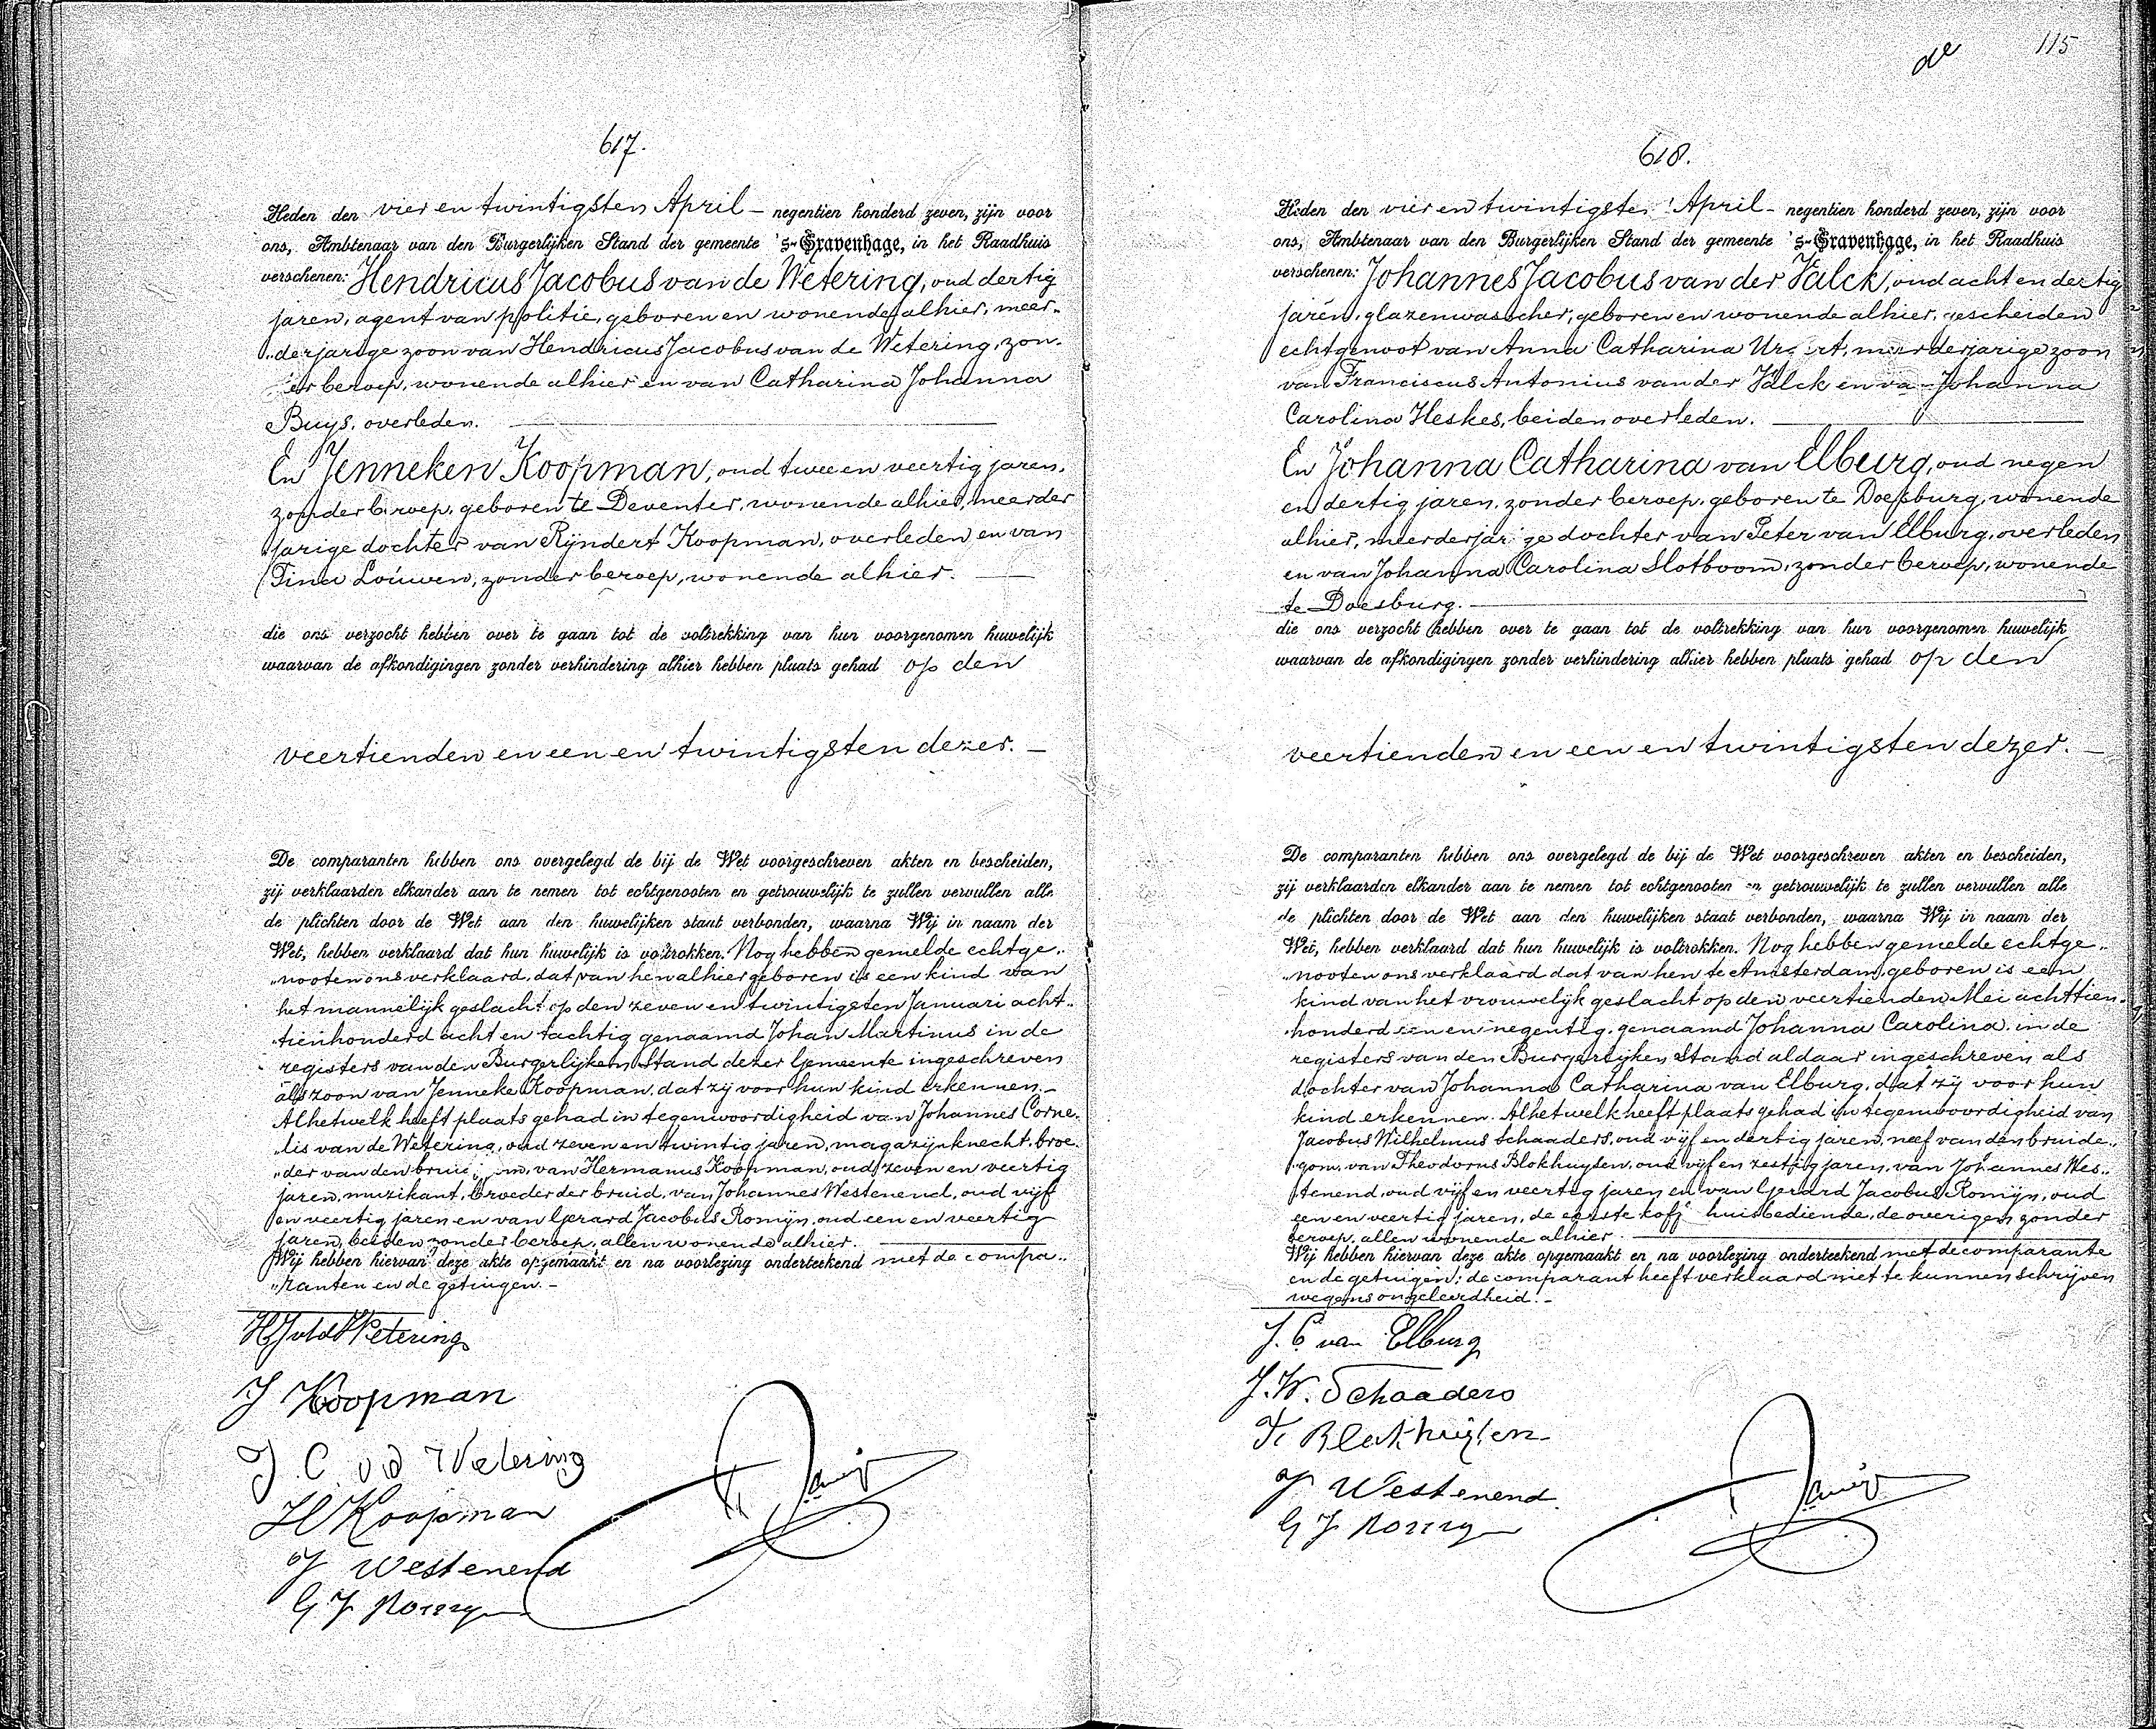 617.
Heden den vier en twintigsten April – negentien honderd zeven, zijn voor
ons, Ambtenaar van den Burgerlijken Stand der gemeente 's-Gravenhage, in het Raadhuis
verschenen: Hendricus Jacobus van de Wetering, oud dertig
jaren, agent van politie, geboren en wonende alhier, meer-
"derjarige zoon van Hendricus Jacobus van de Wetering, zon-
er beroep, wonende alhier en van Catharina Johanna
Buys, overleden.
En Jenneken Koopman, oud twee en veertig jaren,
zonder beroep, geboren te Deventer, wonende alhier, meerder
"jarige dochter van Ryndert Koopman, overleden en van
Tina Louwen, zonder beroep, wonende alhier.
die ons verzocht hebben over te gaan tot de voltrekking van hun voorgenomen huwelijk
waarvan de afkondigingen zonder verhindering alhier hebben plaats gehad op den
veertienden en een en twintigsten dezer. –
De comparanten hebben ons overgelegd de bij de Wet voorgeschreven akten en bescheiden,
zij verklaarden elkander aan te nemen tot echtgenooten en getrouwelijk te zullen vervullen alle
de plichten door de Wet aan den huwelijken staat verbonden, waarna Wij in naam der
Wet, hebben verklaard dat hun huwelijk is voltrokken. Nog hebben gemelde echtge-
"nooten ons verklaard, dat van hen alhier geboren is een kind van
het mannelijk geslacht op den zeven en twintigsten Januari acht-
"tienhonderd acht en tachtig genaamd Johan Martinus in de
registers van den Burgerlijken Stand dezer Gemeente ingeschreven
als zoon van Jenneke Koopman, dat zij voor hun kind erkennen. –
Alhetwelk heeft plaats gehad in tegenwoordigheid van Johannes Corne-
"lis van de Wetering, oud zeven en twintig jaren, magazijnknecht, broe-
"der van den bruidegom, van Hermanus Koopman, oud zeven en veertig
jaren, muzikant, broeder der bruid, van Johannes Westenend, oud vijf
en veertig jaren en van Gerard Jacobus Romijn, oud een en veertig
jaren, beiden zonder beroep, allen wonende alhier.
Wij hebben hiervan deze akte opgemaakt en na voorlezing onderteekend met de compa-
"ranten en de getuigen. –
HJvdWetering
J Koopman
J. C. v d Wetering
H Koopman
J Westenend
G J Romijn
de 115
618.
Heden den vier en twintigsten April – negentien honderd zeven, zijn voor
ons, Ambtenaar van den Burgerlijken Stand der gemeente 's-Gravenhage, in het Raadhuis
verschenen: Johannes Jacobus van der Valck, oud acht en dertig
jaren, glazenwasscher, geboren en wonende alhier, gescheiden
echtgenoot van Anna Catharina meerderjarige zoon
van Franciscus Antonius van der Valck en van Johanna
Carolina Heskes, beiden overleden.
En Johanna Catharina van Elburg, oud negen
en dertig jaren, zonder beroep, geboren te Doesburg, wonende
alhier, meerderjarige dochter van Peter van Elburg, overleden
en van Johanna Carolina Slotboom, zonder beroep, wonende
te Doesburg.
die ons verzocht hebben over te gaan tot de voltrekking van hun voorgenomen huwelijk
waarvan de afkondigingen zonder verhindering alhier hebben plaats gehad op den
veertienden en een en twintigsten dezer. –
De comparanten hebben ons overgelegd de bij de Wet voorgeschreven akten en bescheiden,
zij verklaarden elkander aan te nemen tot echtgenooten en getrouwelijk te zullen vervullen alle
de plichten door de Wet aan den huwelijken staat verbonden, waarna Wij in naam der
Wet, hebben verklaard dat hun huwelijk is voltrokken. Nog hebben gemelde echtge-
"nooten ons verklaard dat van hen te Amsterdam geboren is een
kind van het vrouwelijk geslacht op den veertienden Mei achttien-
honderd een en negentig, genaamd Johanna Carolina, in de
registers van den Burgerlijken Stand aldaar ingeschreven als
dochter van Johanna Catharina van Elburg, dat zij voor hun
kind erkennen. Alhetwelk heeft plaats gehad in tegenwoordigheid van
Jacobus Wilhelmus Schaaders, oud vijf en dertig jaren, neef van den bruide-
"gom, van Theodorus Blokhuysen, oud vijf en zestig jaren, van Johannes Wes-
"tenend, oud vijf en veertig jaren en van Gerard Jacobus Romijn, oud
een en veertig jaren, de eerste koffijhuisbediende, de overigen zonder
beroep, allen wonende alhier.
Wij hebben hiervan deze akte opgemaakt en na voorlezing onderteekend met de comparante
en de getuigen; de comparant heeft verklaard niet te kunnen schrijven
wegens ongeleerdheid. –
J. C. van Elburg
J. W. Schaaders
J Westenend
G J Romijn